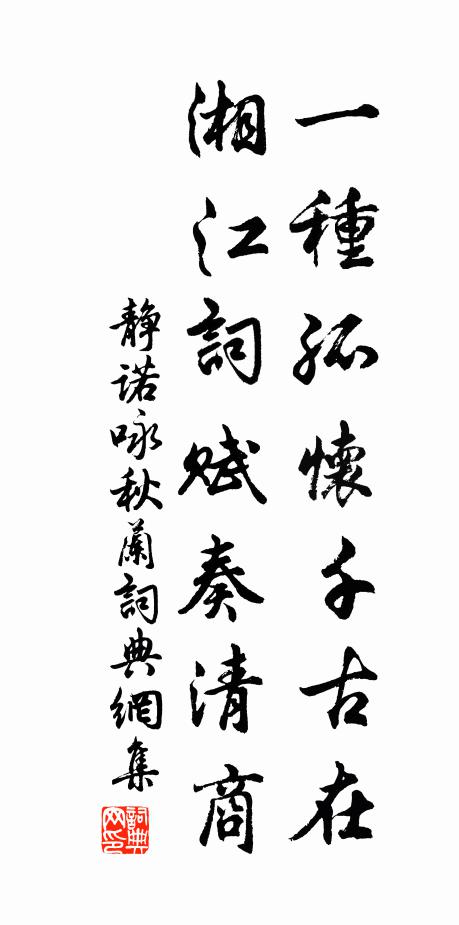 一種孤懷千古在
湘江詞賦奏清商
靜諾咏秋蘭詞典網集
詞典网印